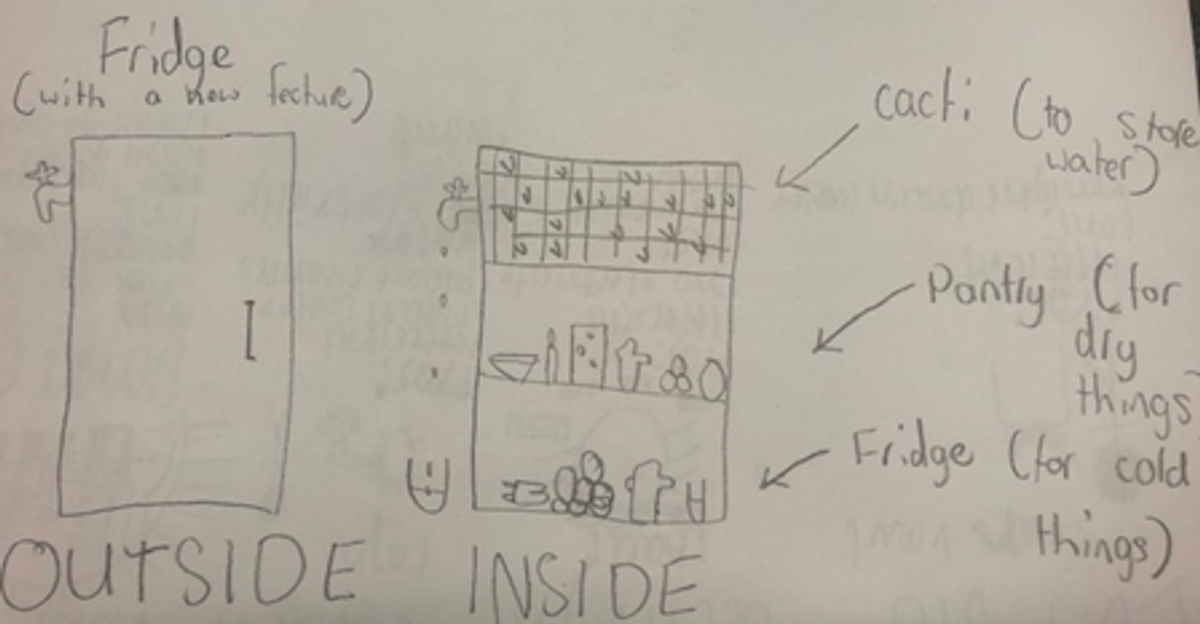 Fridge
(with a new fecture)
cacti (to store
water)
Pantry (for
dry
things)
Fridge (for cold
things)
OUTSIDE
INSIDE